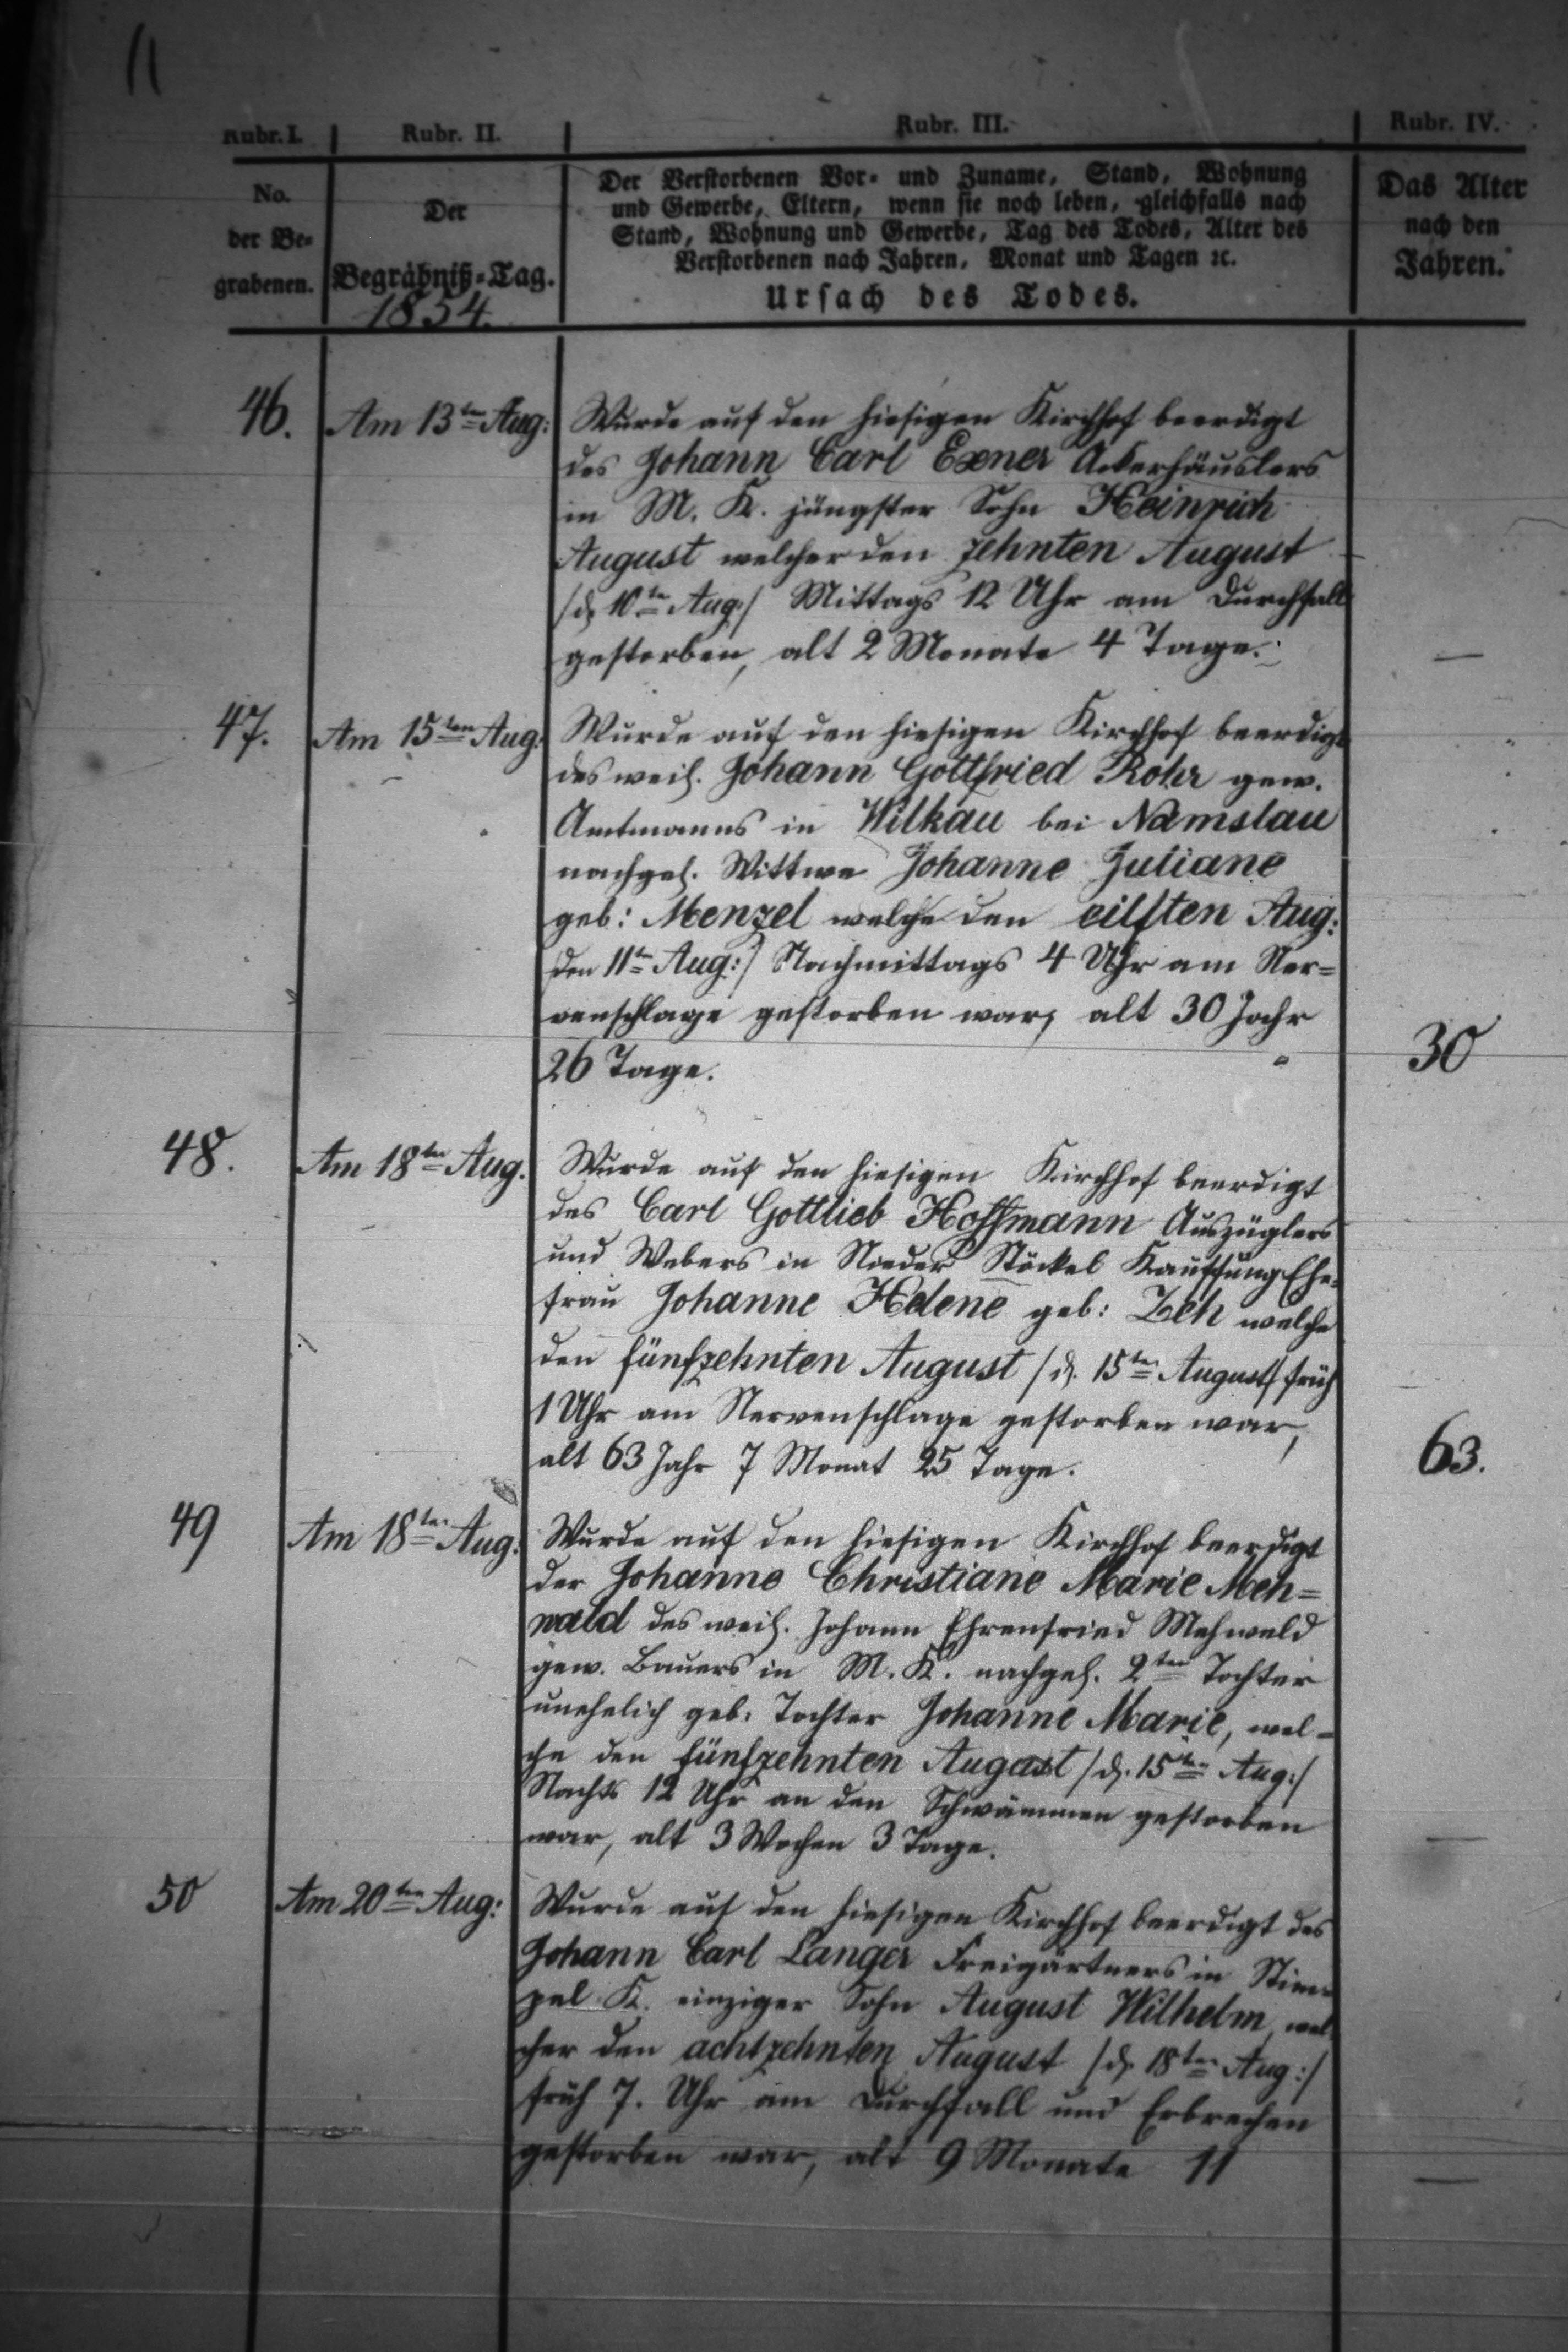 11
Rubr. I. Rubr. II. Rubr. III. Rubr. IV.
No. der Be-grabenen.
Der Begräbniß-Tag.
1854.
Der Verstorbenen Vor- und Zuname, Stand, Wohnung
und Gewerbe, Eltern, wenn sie noch leben, gleichfalls nach
Stand, Wohnung und Gewerbe, Tag des Todes, Alter des
Verstorbenen nach Jahren, Monat und Tagen ꝛc.
Ursach des Todes.
Das Alter
nach den
Jahren.
46. Am 13ten Aug: Wurde auf den hiesigen Kirchhof beerdigt
des Johann Carl Exner Ackerhäuslers
in M. K. jüngster Sohn Heinrich
August welcher den zehnten August
/d. 10ten Aug:/ Mittags 12 Uhr am Durchfall
gestorben, alt 2 Monate 4 Tage. —
47. Am 15ten Aug: Wurde auf den hiesigen Kirchhof beerdigt
des weil. Johann Gottfried Rohr gew.
Amtmanns in Wilkau bei Namslau
nachgel. Wittwe Johanne Juliane
geb: Menzel welche den eilften Aug:
/den 11ten Aug:/ Nachmittags 4 Uhr am Ner=
venschlage gestorben war, alt 30 Jahr
26 Tage. 30
48. Am 18ten Aug. Wurde auf den hiesigen Kirchhof beerdigt
des Carl Gottlieb Hoffmann Auszüglers
und Webers in Nieder Stöckel Kauffung Ehe=
frau Johanne Helene geb: Zeh welche
den fünfzehnten August /d. 15ten August/ früh
1 Uhr am Nervenschlage gestorben war,
alt 63 Jahr 7 Monat 25 Tage. 63.
49 Am 18ten Aug: Wurde auf den hiesigen Kirchhof beerdigt
der Johanne Christiane Marie Meh=
wald des weil. Johann Ehrenfried Mehwald
gew. Bauers in M. K. nachgel. 2ten Tochter
unehelich geb. Tochter Johanne Marie, wel=
che den fünfzehnten August /d. 15ten Aug:/
Nachts 12 Uhr an den Schwämmen gestorben
war, alt 3 Wochen 3 Tage. —
50 Am 20ten Aug: Wurde auf den hiesigen Kirchhof beerdigt des
Johann Carl Langer Freigärtners in Stim=
pel K. einziger Sohn August Wilhelm, wel=
cher den achtzehnten August /d. 18ten Aug:/
früh 7. Uhr am Durchfall und Erbrechen
gestorben war, alt 9 Monate 11 —